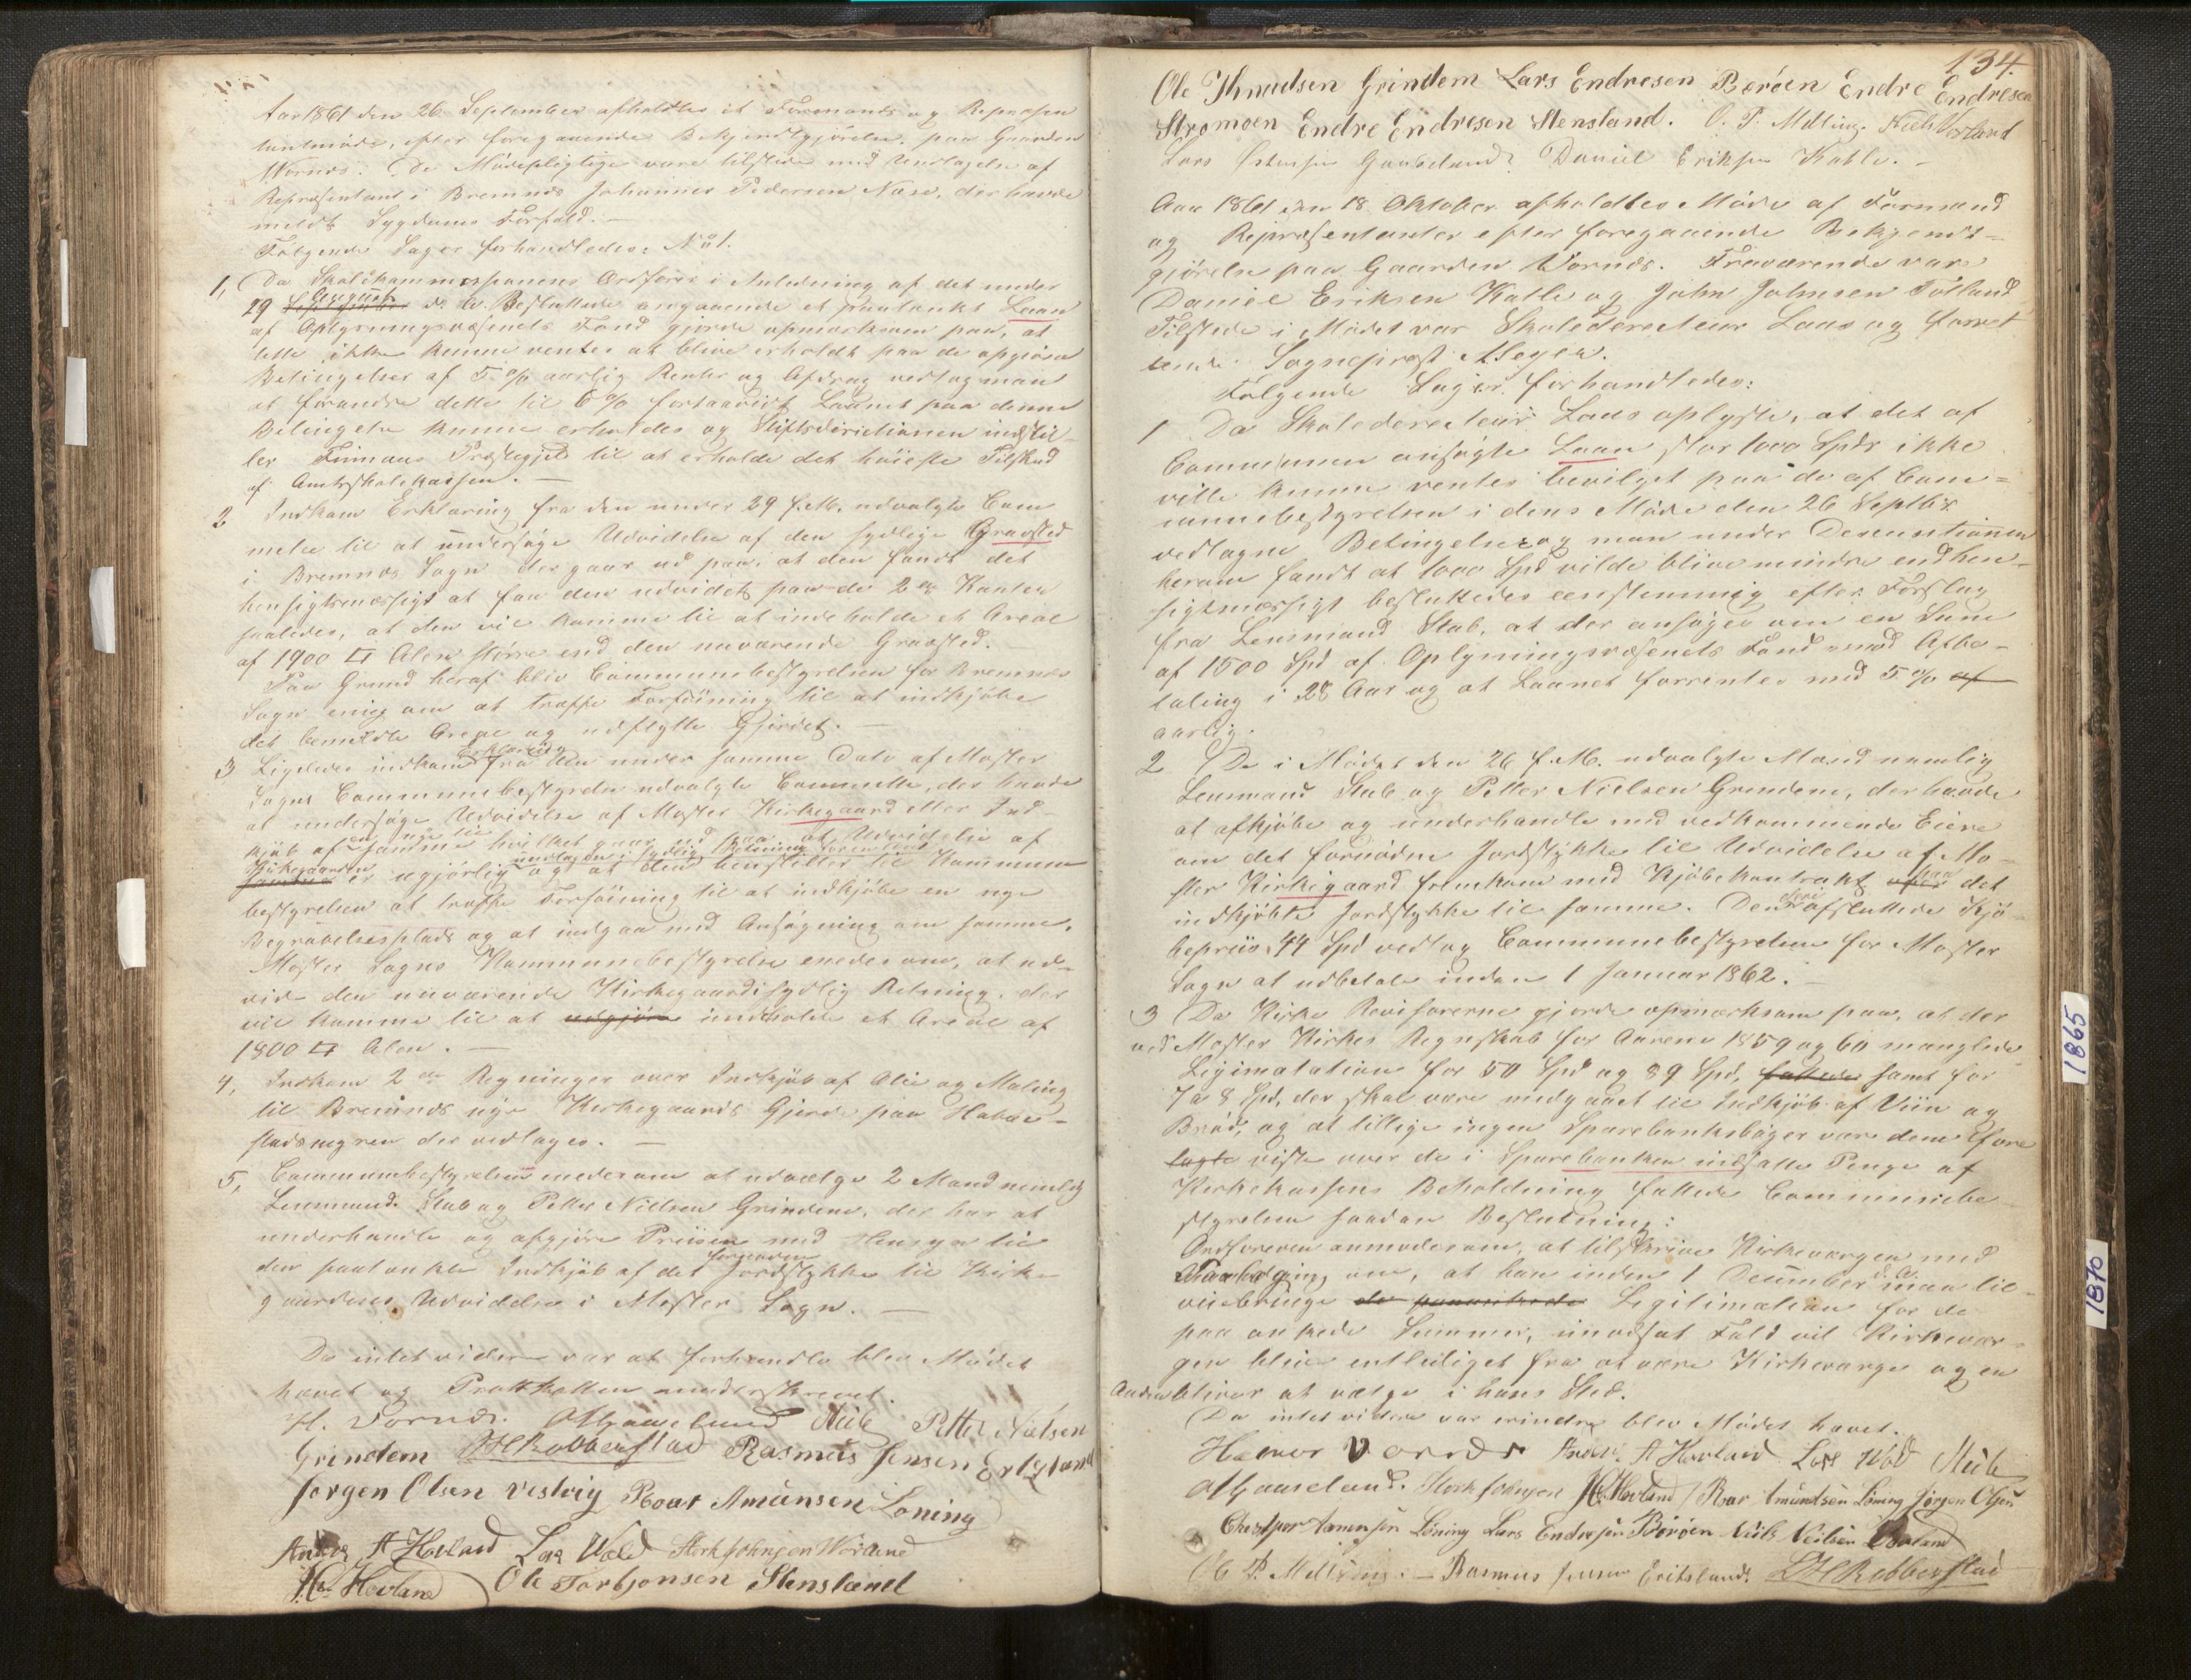 Aar 1861 den 26 September afholdtes et Formands og Repræsen
tantmøde, efter foregaaende Bekjendtgjørelse, paa Gaarden
Vornes. De Mødepligtige vare tilstede med Undtagelse af
Repræsentant i Bremnes Johannes Pedersen Næse, der havde
meldt Sygdoms Forfald. —
Følgende Sager forhandledes: No 1.
1, Da Skolekommissionens Ordfører i Anledning af det under
29 August d. A. Besluttede angaaende et paatænkt Laan
af Oplysningsvæsenets Fond gjorde opmærksom paa, at
dette ikke kunne ventes at blive erholdt paa de opgivne
Betingelser af 5 % aarlig Renter og Afdrag vedtog man
at forandre dette til 6 % forsaavidt Laanet paa denne
Betingelse kunne erholdes og Stiftsdirectionen indstil-
ler Finnaas Præstegjeld til at erholde det høieste Tilskud
af Amtsskolekassen. —
2 Indkom Erklæring fra den under 29 f. M. udvalgte Com
mitee til at undersøge Udvidelse af den sydlige Gravsted
i Bremnes Sogn der gaar ud paa, at den fandt det
hensigtsmæssigt at faa den udvidet paa de 2de Kanter
saaledes, at den vil komme til at indeholde et Areal
af 1900 □ Alen større end den nuværende Gravsted.
Paa Grund heraf blev Communebestyrelsen for Bremnes
Sogn enig om at træffe Forføining til at indkjøbe
det bemeldte Areal og udflytte Gjerdet. —
3 Ligeledes indkom Erklæring fra den under samme Dato af Moster
Sogns Communebestyrelse udvalgte Committe, der havde
at undersøge Udvidelse af Moster Kirkegaard eller Ind-
kjøb af en nye til samme hvilket gaar ud paa at Udvidelse af
Kirkegaarden er ugjørlig undtagen i sydlig Retning og at den henstiller til Kommune
bestyrelsen at træffe Forføining til at indkjøbe en nye
Begravelsesplads og at indgaa med Ansøgning om samme.
Moster Sogns Kommunebestyrelse enedes om, at ud-
vide den nuværende Kirkegaard i sydlig Retning, der
vil komme til at udgjøre indeholde et Areal af
1800 □ Alen. —
4, Indkom 2de Regninger over Indkjøb af Olie og Maling
til Bremnes nye Kirkegaards Gjerde paa Haban-
stadmyren der vedtoges. —
5, Communebestyrelsen enedes om at udvælge 2 Mænd nemlig
Lensmand Stub og Petter Nielsen Grindem, der har at
underhandle og afgjøre Priisen med Hensyn til
den paatænkte Indkjøb af det fornødne Jordstykke til Kirke
gaardens Udvidelse i Moster Sogn. —
Da intet videre var at forhandle blev Mødet
hævet og Protokollen underskrevet.
H. Vornes. O. Gaaseland Stub Petter Nielsen
Grindem Robberstad Rasmus Jensen
Jørgen Olsen Vestvig Roar Amunsen Løning
A Hovland Lars Wold Størk Johnsen
H. Hovland Ole Torbjønsen Stensland
134.
Ole Knudsen Grindem Lars Endresen Børøen Endre Endresen
Strømøen Endre Endresen Stensland. O. P. Melling.
Lars Gaaseland Daniel Eriksen Katle. –
Aar 1861 den 18 Oktober afholdtes Møde af Formænd
og Repræsentanter efter foregaaende Bekjendt-
gjørelse paa Gaarden Vornes. Fraværende var
Daniel Eriksen Katle og John Johnsen Tolland
Tilstede i Mødet var Skoledirecteur Laas og forret
tende Sogneprest Meyer.
Følgende Sager forhandledes:
1 Da Skoledirecteur Laas oplyste, at det af
Communen ansøgte Laan stor 1000 Spdr ikke
ville kunne ventes bevilget paa de af Com=
munebestyrelsen i dens Møde den 26 Septbr
vedtagne Betingelser og man under Descusionen
herom fandt at 1000 Spd vilde blive mindre end hen-
sigtmæssigt besluttedes eenstemmig efter Forslag
fra Lensmand Stub, at der ansøges om en Sum
af 1500 Spd af Oplysningsvæsenets Fond mod Afbe-
taling i 28 Aar og at Laanet forrentes med 5 % af
aarlig.
2 De i Mødet den 26 f. M. udvalgte Mænd nemlig
Lensmand Stub og Petter Nielsen Grindem, der havde
at afkjøbe og underhandle med vedkommende Eiere
om det fornødne Jordstykke til Udvidelse af Mo-
ster Kirkegaard fremkom med Kjøbekontrakt over paa det
indkjøbte Jordstykke til samme. Den deri afsluttede Kjø
bepriis 44 Spd vedtog Communebestyrelsen for Moster
Sogn at udbetale inden 1 Januar 1862. –
3 Da Kirke Revisorerne gjorde opmærksom paa, at der
ved Moster Kirkes Regnskab for Aarene 1859 og 60 manglede
Ligimatation for 50 Spd og 39 Spd, fattedes samt for
7 a 8 Spd, der skal være medgaaet til Indkjøb af Viin og
Brød, og at tillige ingen Sparebanksbøger vare dem fore
lagte viste over de i Sparebanken indsatte Penge af
Kirkekassens Beholdning fattede Communebe
styrelsen saadan Beslutning:
Ordføreren anmodes om, at tilskrive Kirkevergen med
om, at han inden 1 December d. A. maa til-
veiebringe de paaankede Legitimation for de
paaankede Summer, imodsat Fald vil Kirkever-
gen blive entlediget fra at være Kirkeverge og en
Anden bliver at vælge i hans Sted.
Da intet videre var erindre blev Mødet hævet.
Hævor Vornes A Hovland Lars Wold Stub
O Gaaseland. Størk Johnsen H. Hovland Roar Amundsen Løning Jørgen Olsen
Løning Lars Endresen Børøen Niels Nielsen
O P. Melling. – Rasmus Jensen Eritsland. Robberstad
1865
1870